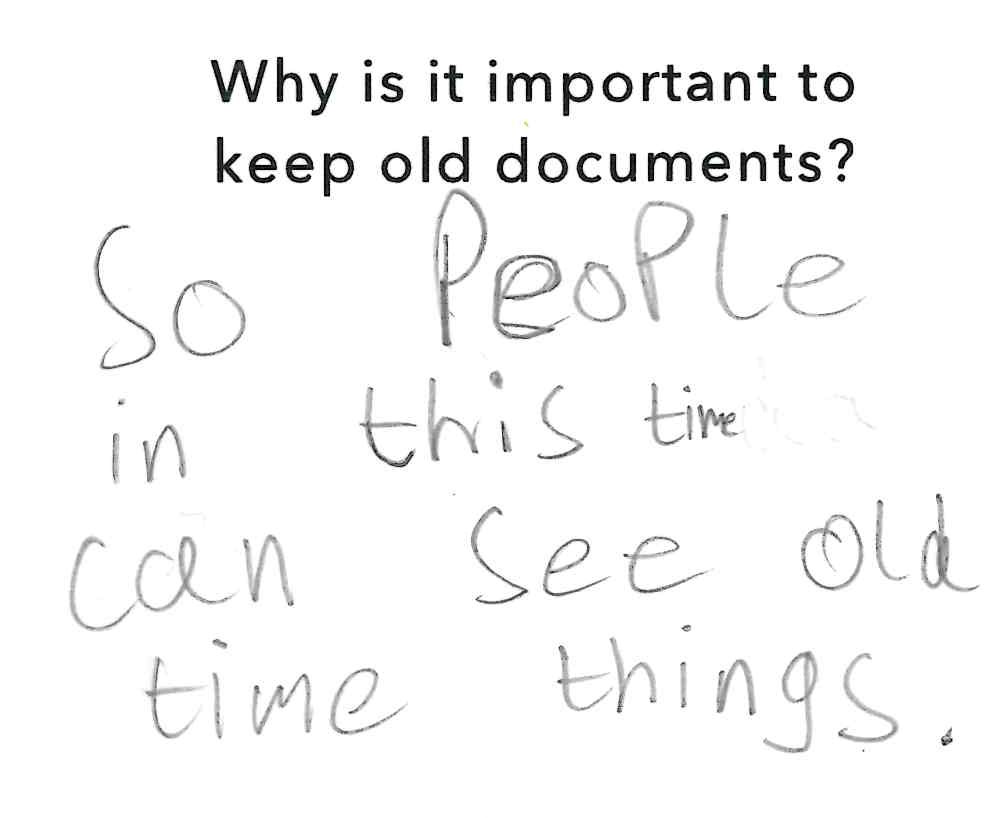 Why is it important to
keep old documents?
So People
in this time
can see old
time things.